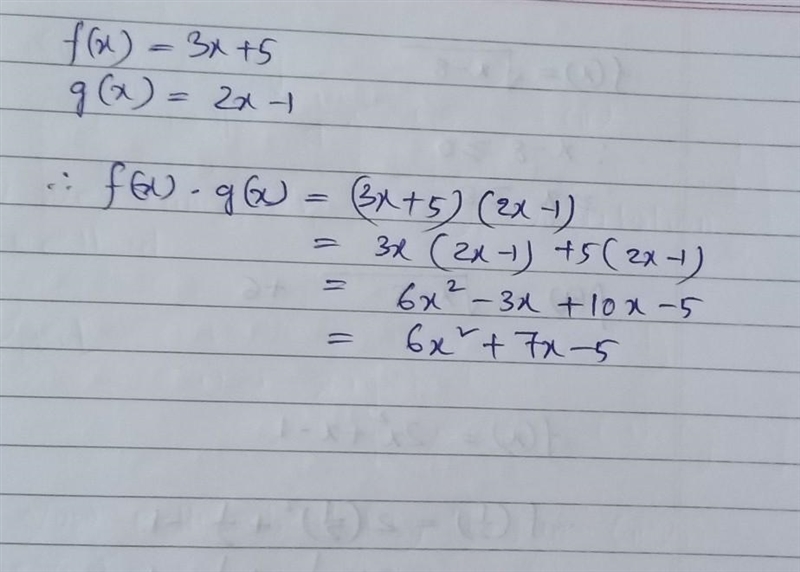 f(x) = 3x + 5
g(x) = 2x - 1
∴ f(x) · g(x) = (3x + 5) (2x - 1)
= 3x (2x - 1) + 5 (2x - 1)
= 6x² - 3x + 10x - 5
= 6x² + 7x - 5